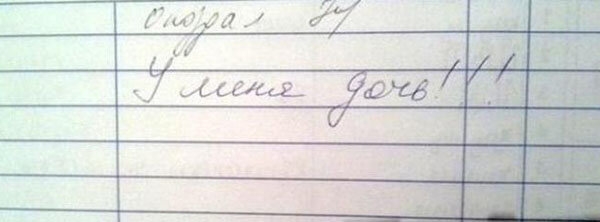 опоздал
У меня дочь!!!